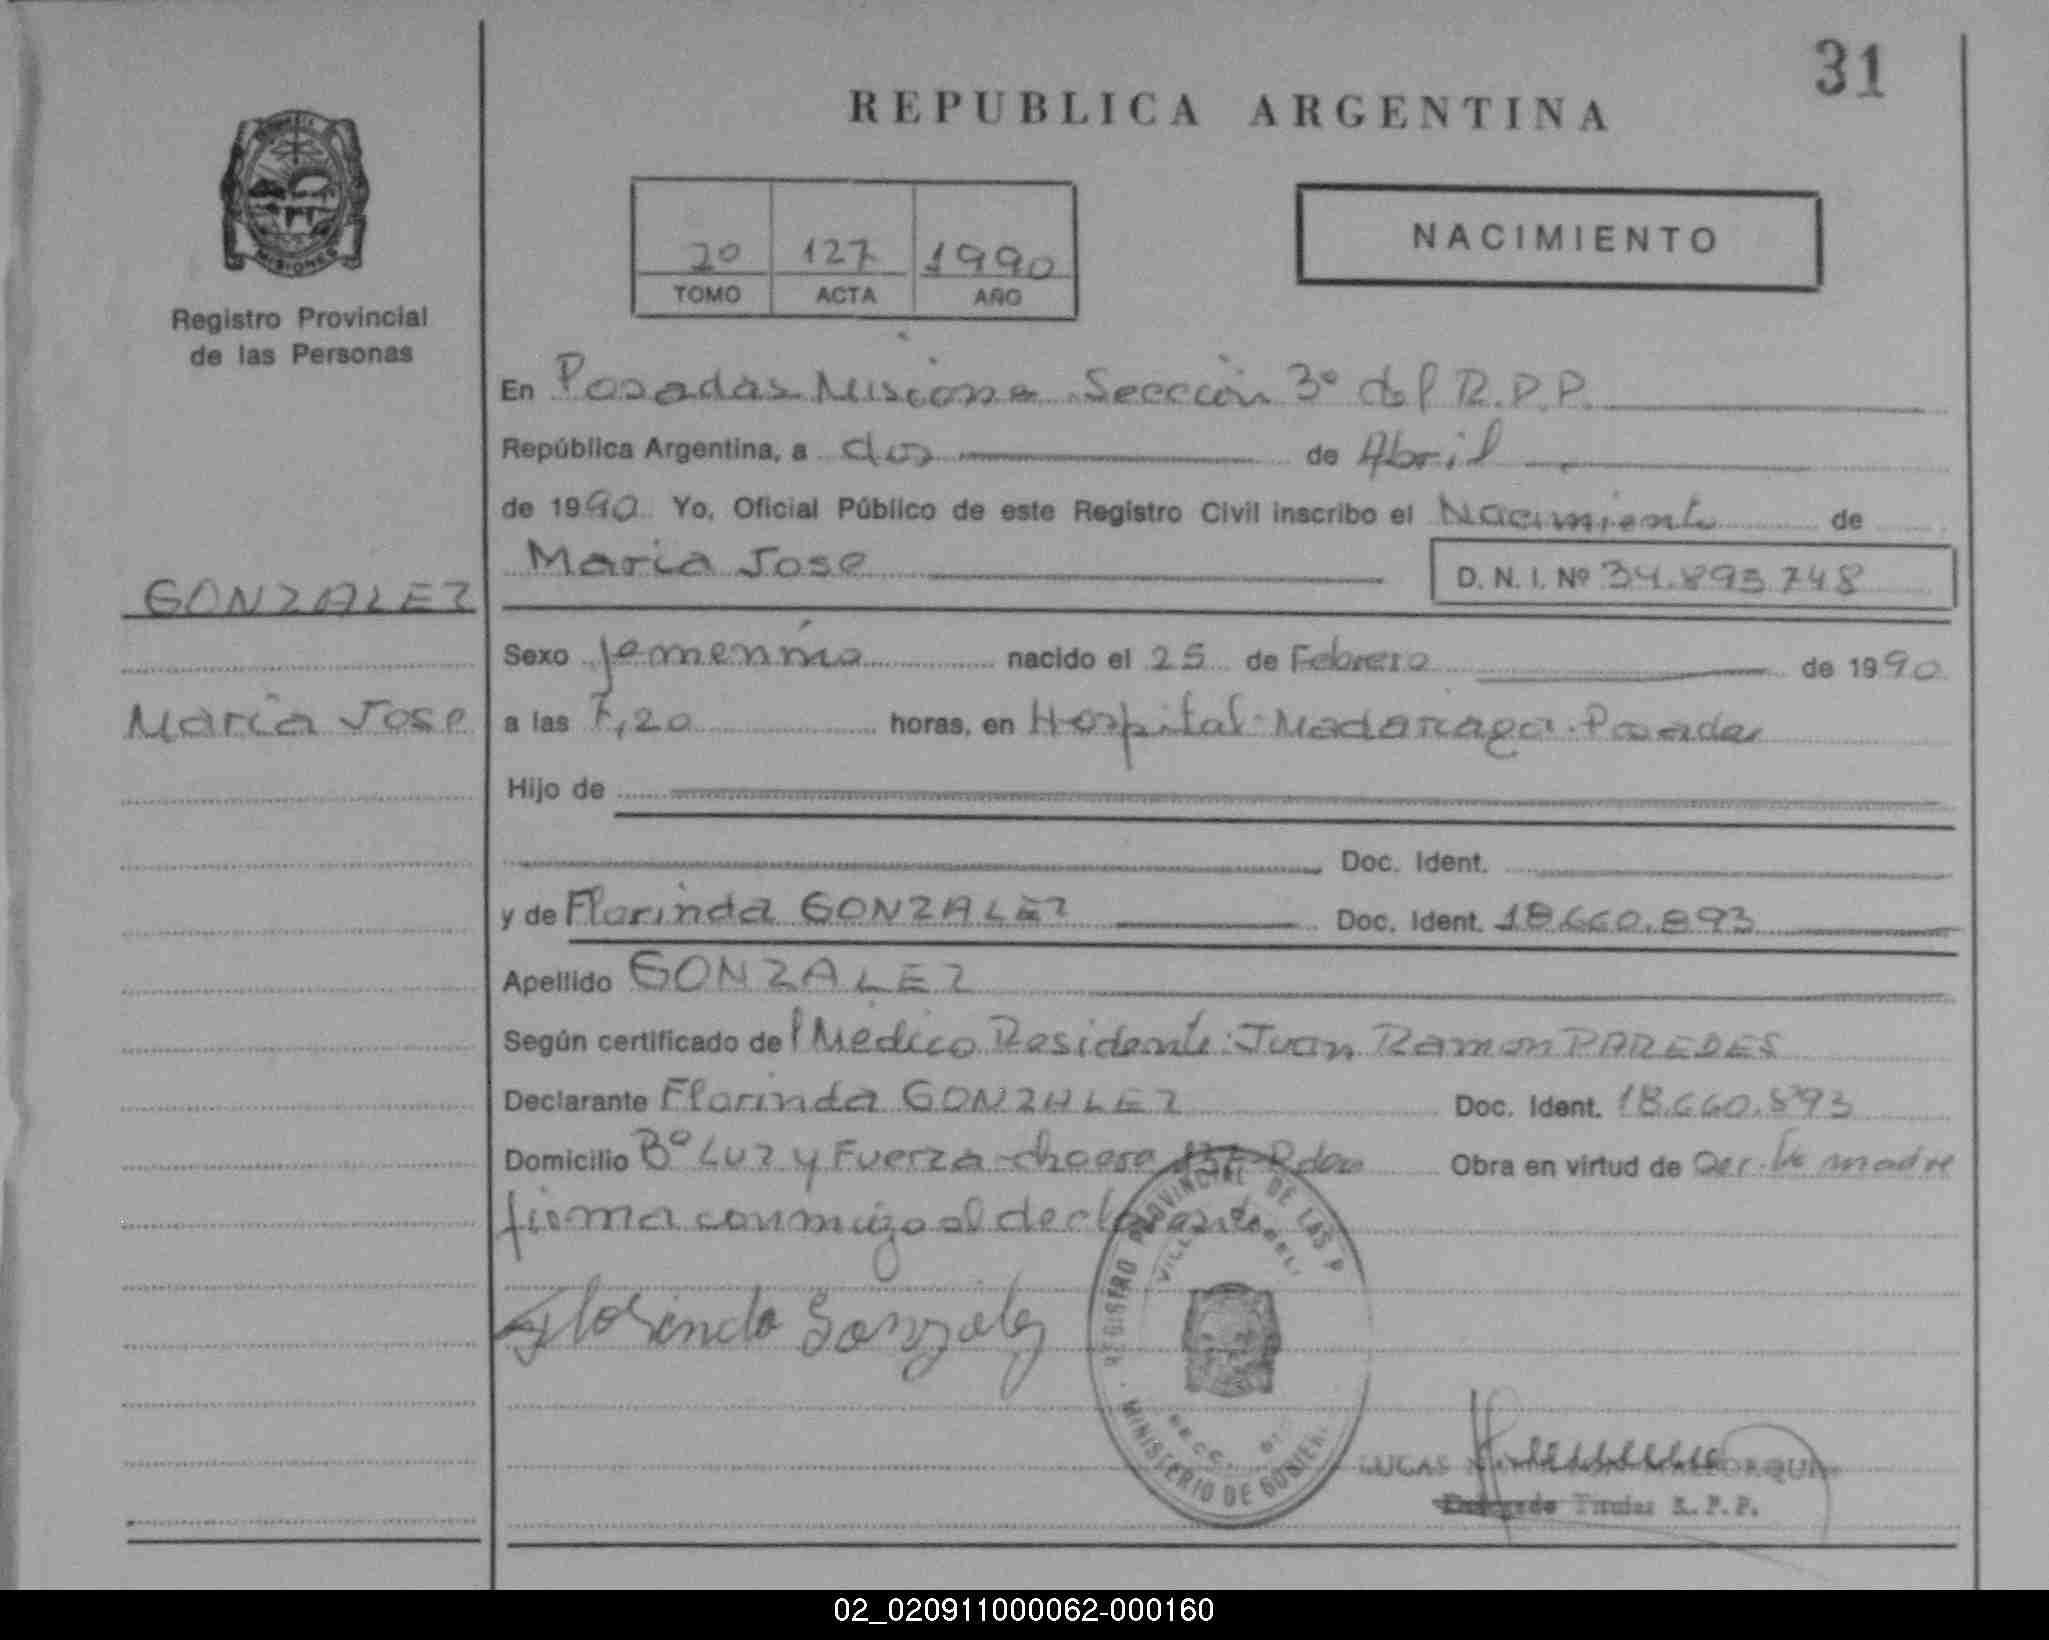 31
REPUBLICA ARGENTINA
MISIONES
Registro Provincial
de las Personas
20 127 1990
TOMO ACTA AÑO
NACIMIENTO
En Posadas Misiones Sección 3º del R.P.P.
República Argentina, a dos de Abril
de 1990 Yo, Oficial Público de este Registro Civil inscribo el Nacimiento de
Maria Jose D. N. I. Nº 34.895.748
GONZALEZ
Sexo femenino nacido el 25 de Febrero de 1990
Maria Jose
a las 7,20 horas, en Hospital Madariaga. Posadas
Hijo de
Doc. Ident.
y de Florinda GONZALEZ Doc. Ident. 18.660.893
Apellido GONZALEZ
Según certificado del Médico Residente: Juan Ramon PAREDES
Declarante Florinda GONZALEZ Doc. Ident. 18.660.893
Domicilio Bº Luz y Fuerza chacra Obra en virtud de madre
firma conmigo el declarante
REGISTRO PROVINCIAL DE LAS P
VILLA
MINISTERIO DE GOBIER
Florinda Gonzalez
LUCAS
Titular R.P.P.
02_020911000062-000160